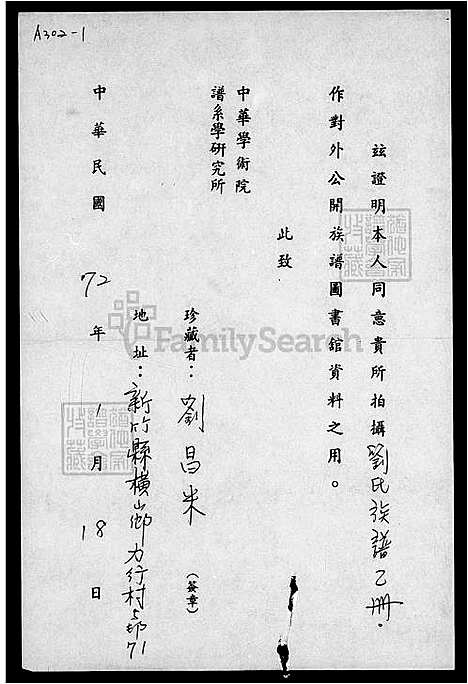 A302-1
茲證明本人同意貴所拍攝劉氏族譜乙冊.
作對外公開族譜圖書館資料之用。
此致
中華學術院
譜系學研究所
珍藏者：劉昌米(簽章)
地址：新竹縣橫山鄉力行村5鄰71
中華民國72年1月18日
FamilySearch